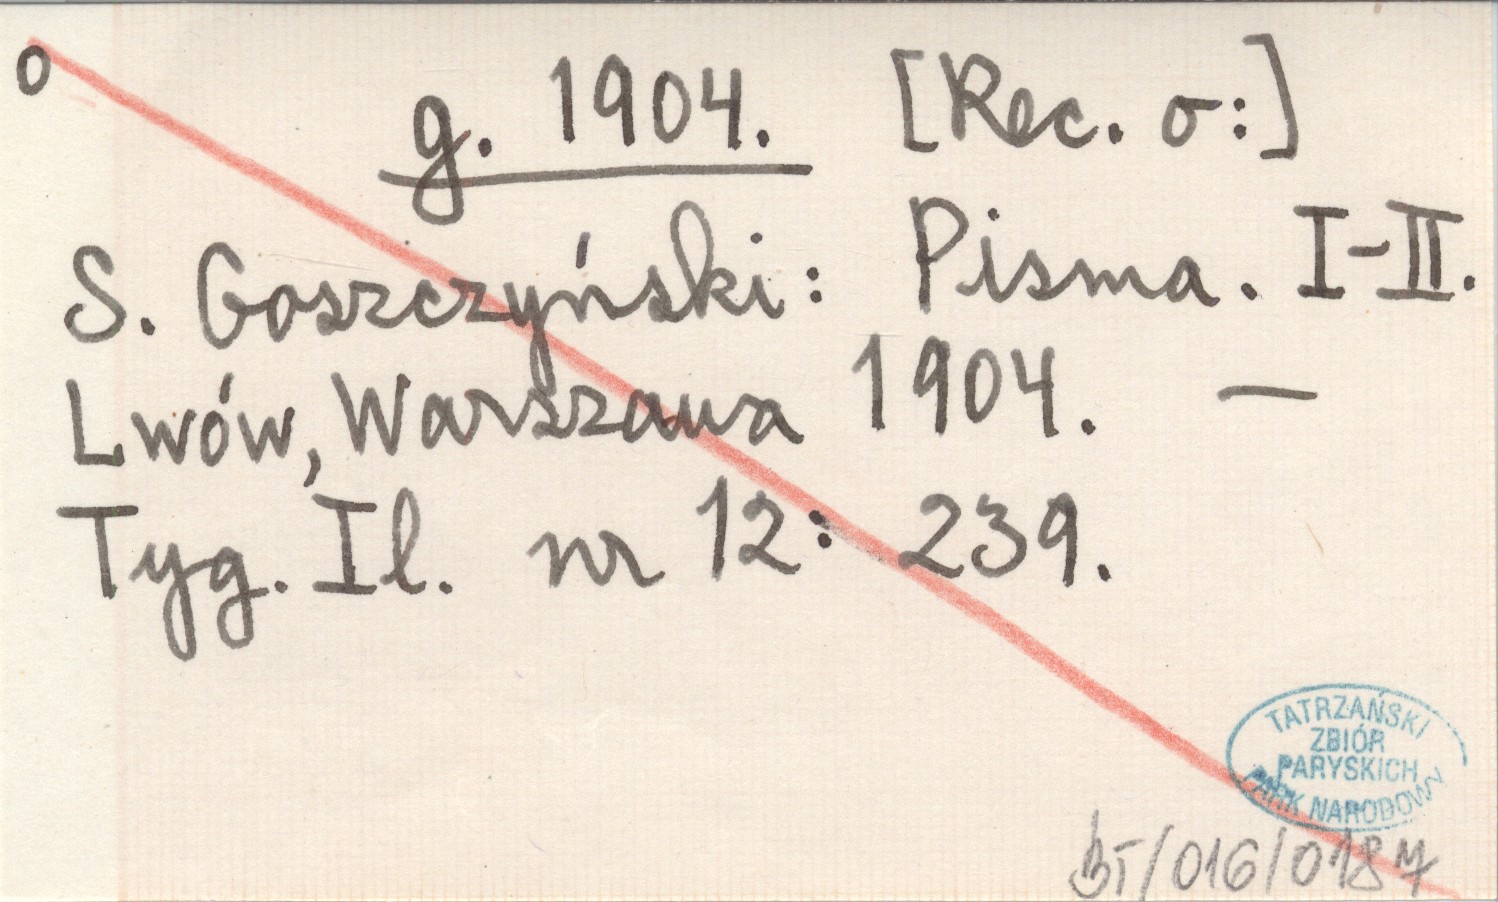 o
g. 1904. [Rec. o:]
S. Goszczyński: Pisma. I-II.
Lwów, Warszawa 1904. —
Tyg. Il. nr 12: 239.
TATRZAŃSKI
ZBIÓR
PARYSKICH
PARK NARODOWY
BT/016/0187